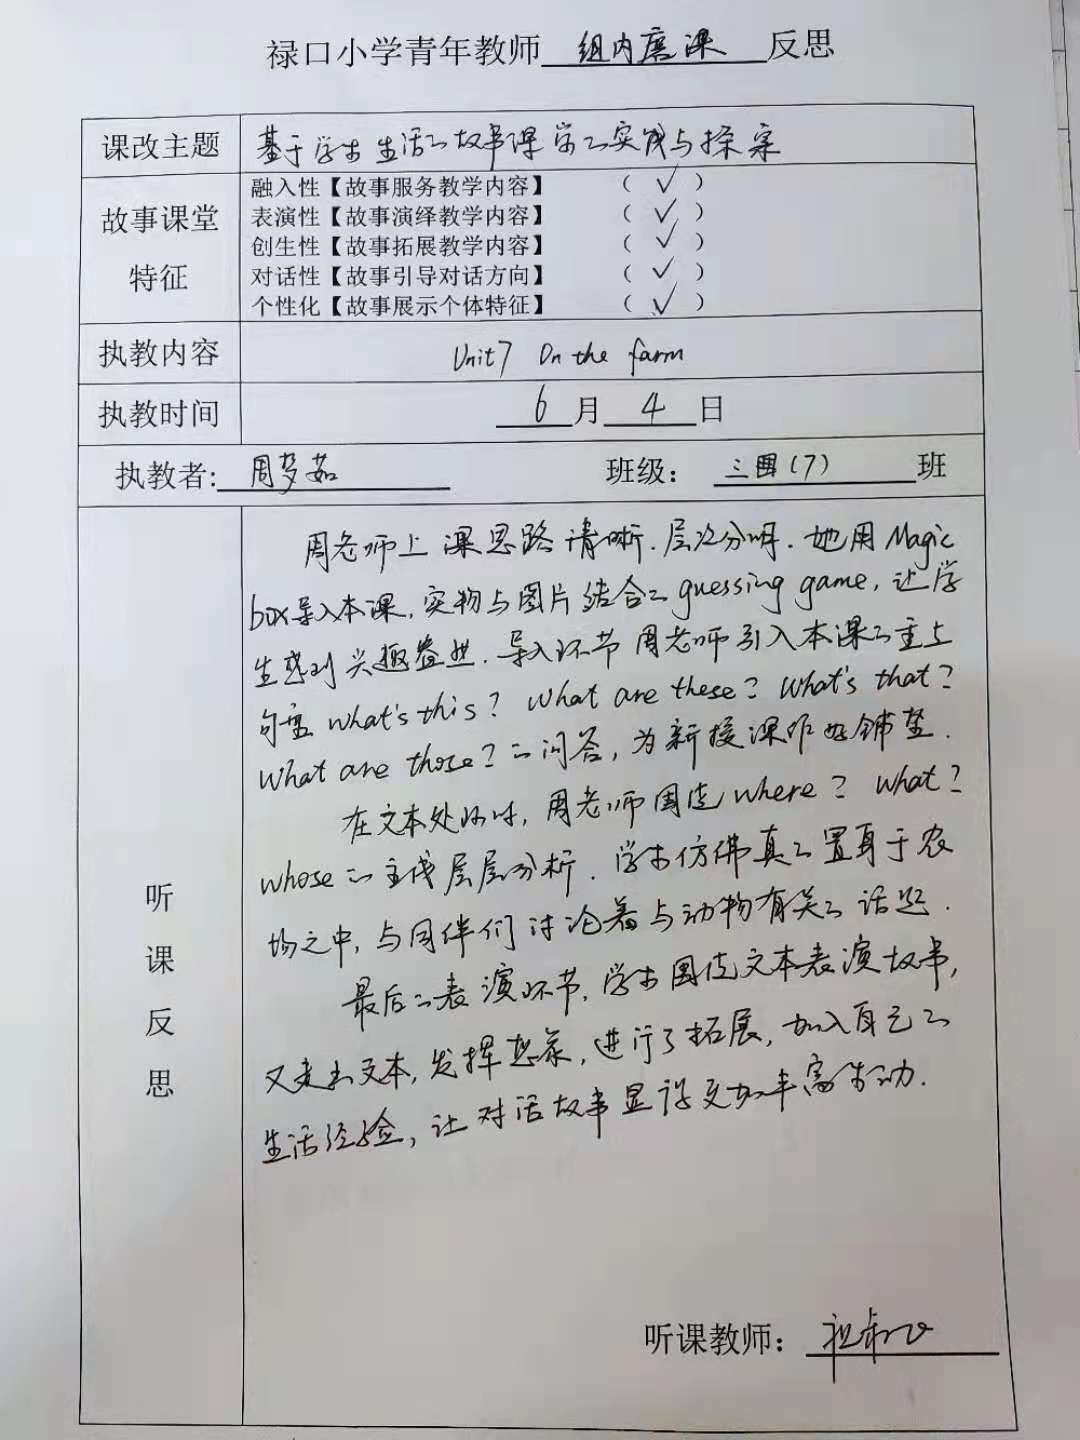 禄口小学青年教师 组内磨课 反思
课改主题 基于学生生活的故事课堂的实践与探索
故事课堂特征
融入性【故事服务教学内容】 （ √ ）
表演性【故事演绎教学内容】 （ √ ）
创生性【故事拓展教学内容】 （ √ ）
对话性【故事引导对话方向】 （ √ ）
个性化【故事展示个体特征】 （ √ ）
执教内容 Unit7 On the farm
执教时间 6 月 4 日
执教者: 周梦茹 班级: 三（7） 班
听课反思
周老师上课思路清晰.层次分明.她用Magic
box导入本课,实物与图片结合的guessing game,让学
生感到兴趣盎然.导入环节周老师引入本课的重点
句型 What's this? What are these? What's that?
What are those?的问答,为新授课作好铺垫.
在文本处理时,周老师围绕where? what?
whose的主线层层分析.学生仿佛真的置身于农
场之中,与同伴们讨论着与动物有关的话题.
最后的表演环节,学生围绕文本表演故事,
又走出文本,发挥想象,进行了拓展,加入自己的
生活经验,让对话故事显得更加丰富生动.
听课教师: